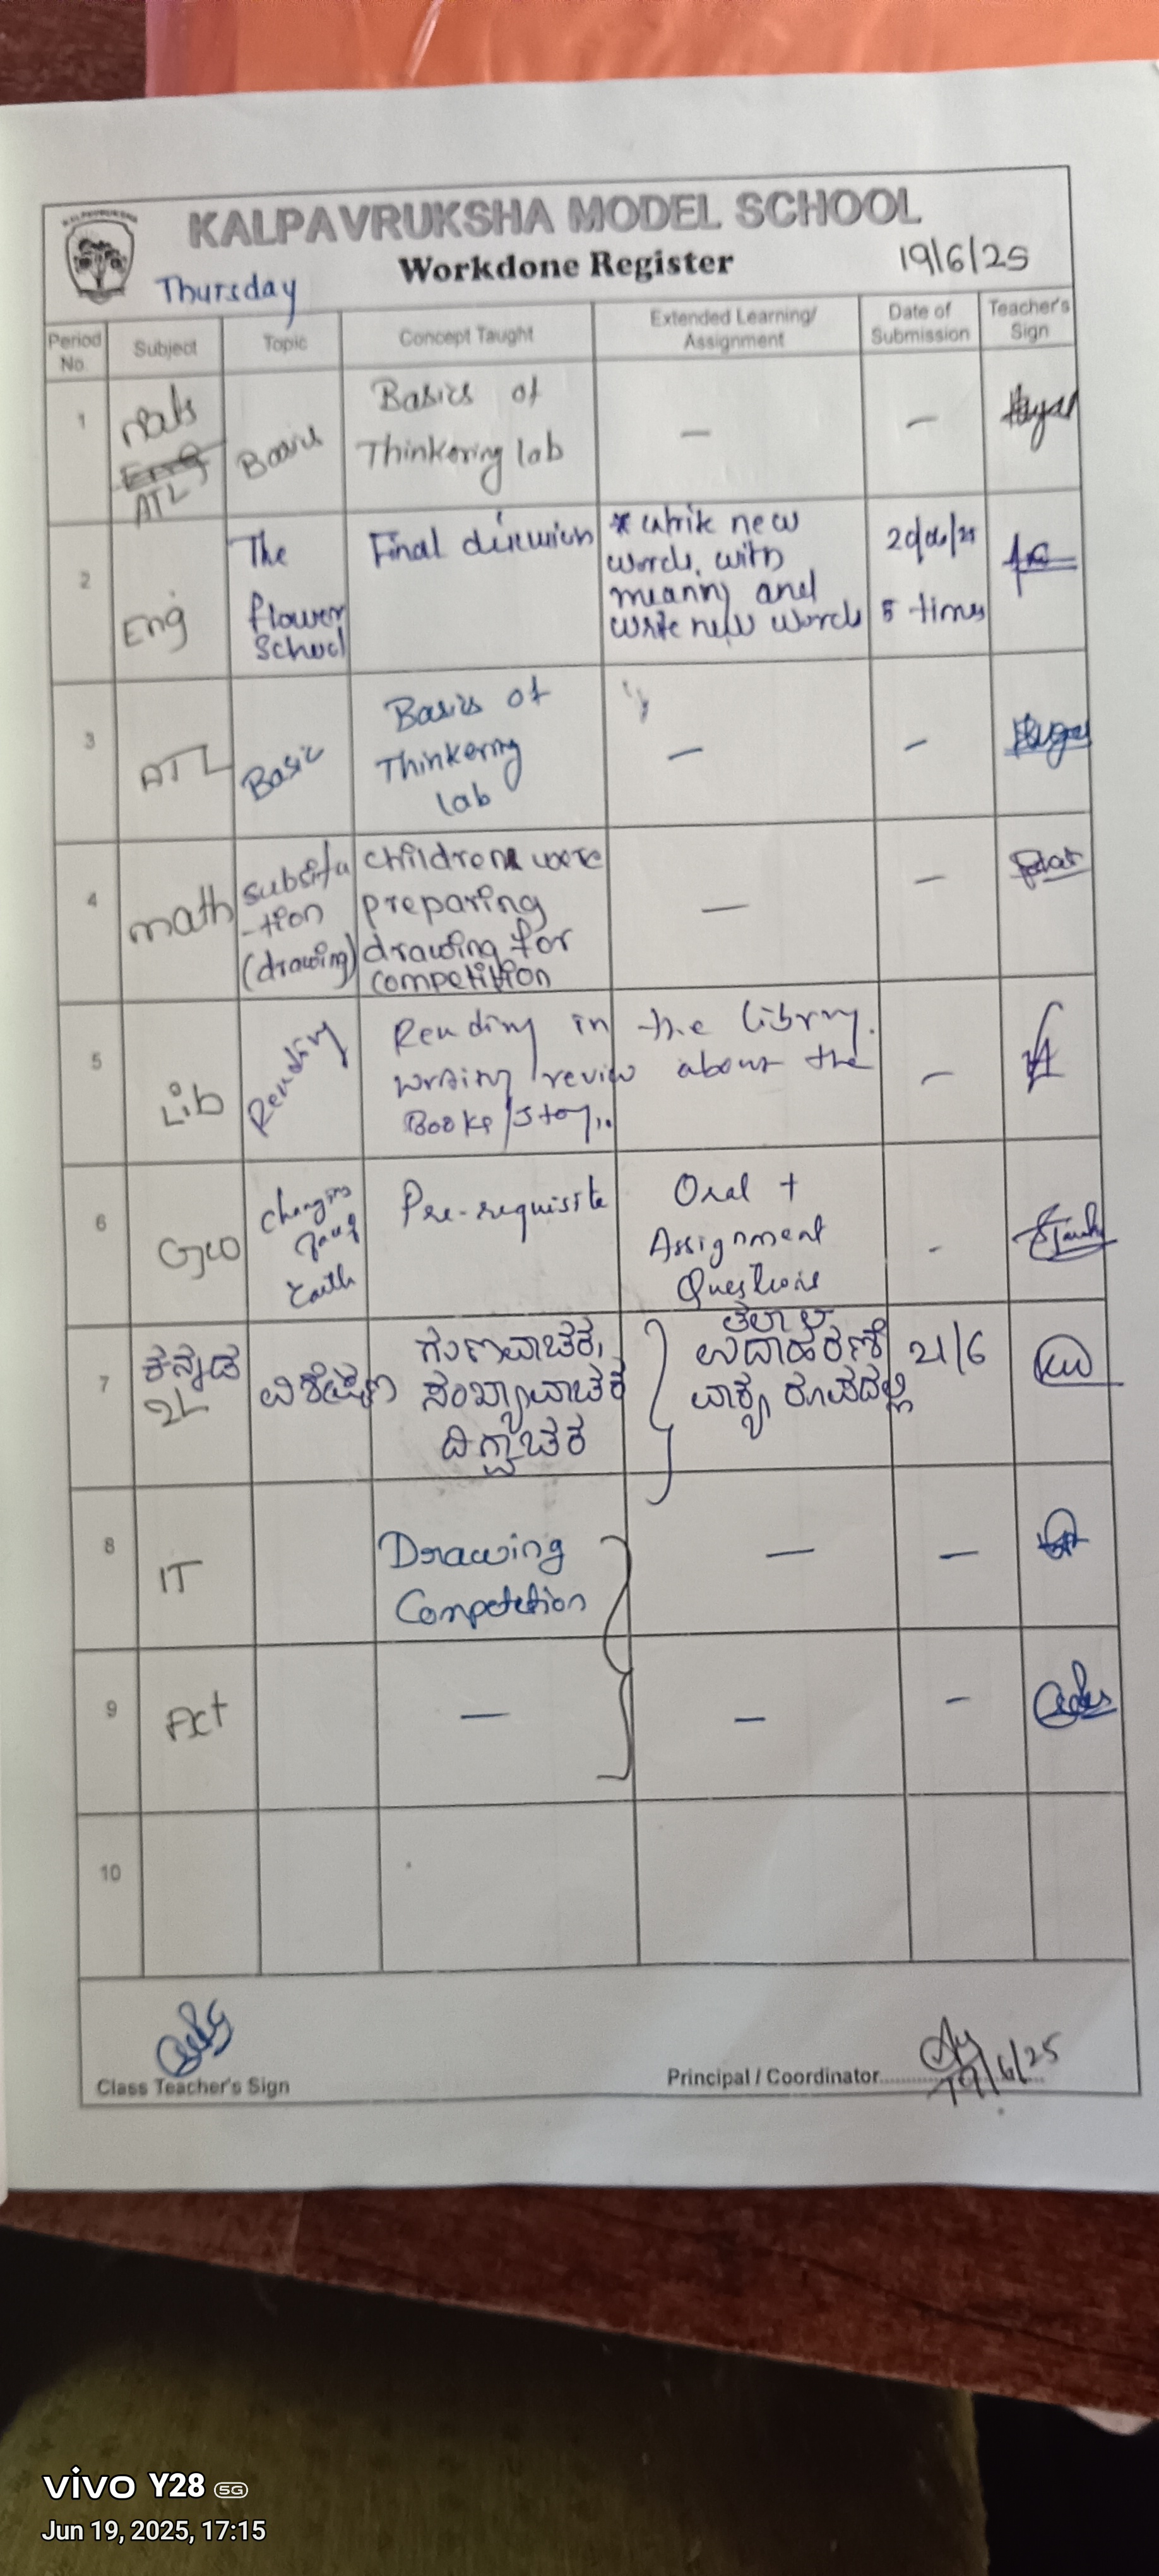 KALPAVRUKSHA MODEL SCHOOL
Workdone Register
Thursday
19/6/25
Period No. Subject Topic Concept Taught Extended Learning/ Assignment Date of Submission Teacher's Sign
1
Eng
ATL
Basics
Basics of
Thinkering lab
—
—
2
Eng
The
flower
School
Final
* write new
words, with
meaning and
write new words 5 times
3
ATL
Basic
Basics of
Thinkering
lab
—
—
4
math
substitu
-tion
(drawing)
children were
preparing
drawing for
competition
—
—
5
Lib
Reading
Reading in the library.
writing review about the
Books/story.
—
6
Geo
Changing
Earth
Pre-requisite
Oral +
Assignment
Questions
-
7
ಕನ್ನಡ
2L
ವಿಶೇಷಣ
ಸಂಖ್ಯಾವಾಚಕ
ದಿಗ್ವಾಚಕ
ಉದಾಹರಣೆ
ವಾಕ್ಯ ರೂಪದಲ್ಲಿ
21/6
8
IT
Drawing
Competetion
—
—
9
—
—
-
10
Class Teacher's Sign
Principal / Coordinator
19/6/25
vivo Y28 5G
Jun 19, 2025, 17:15